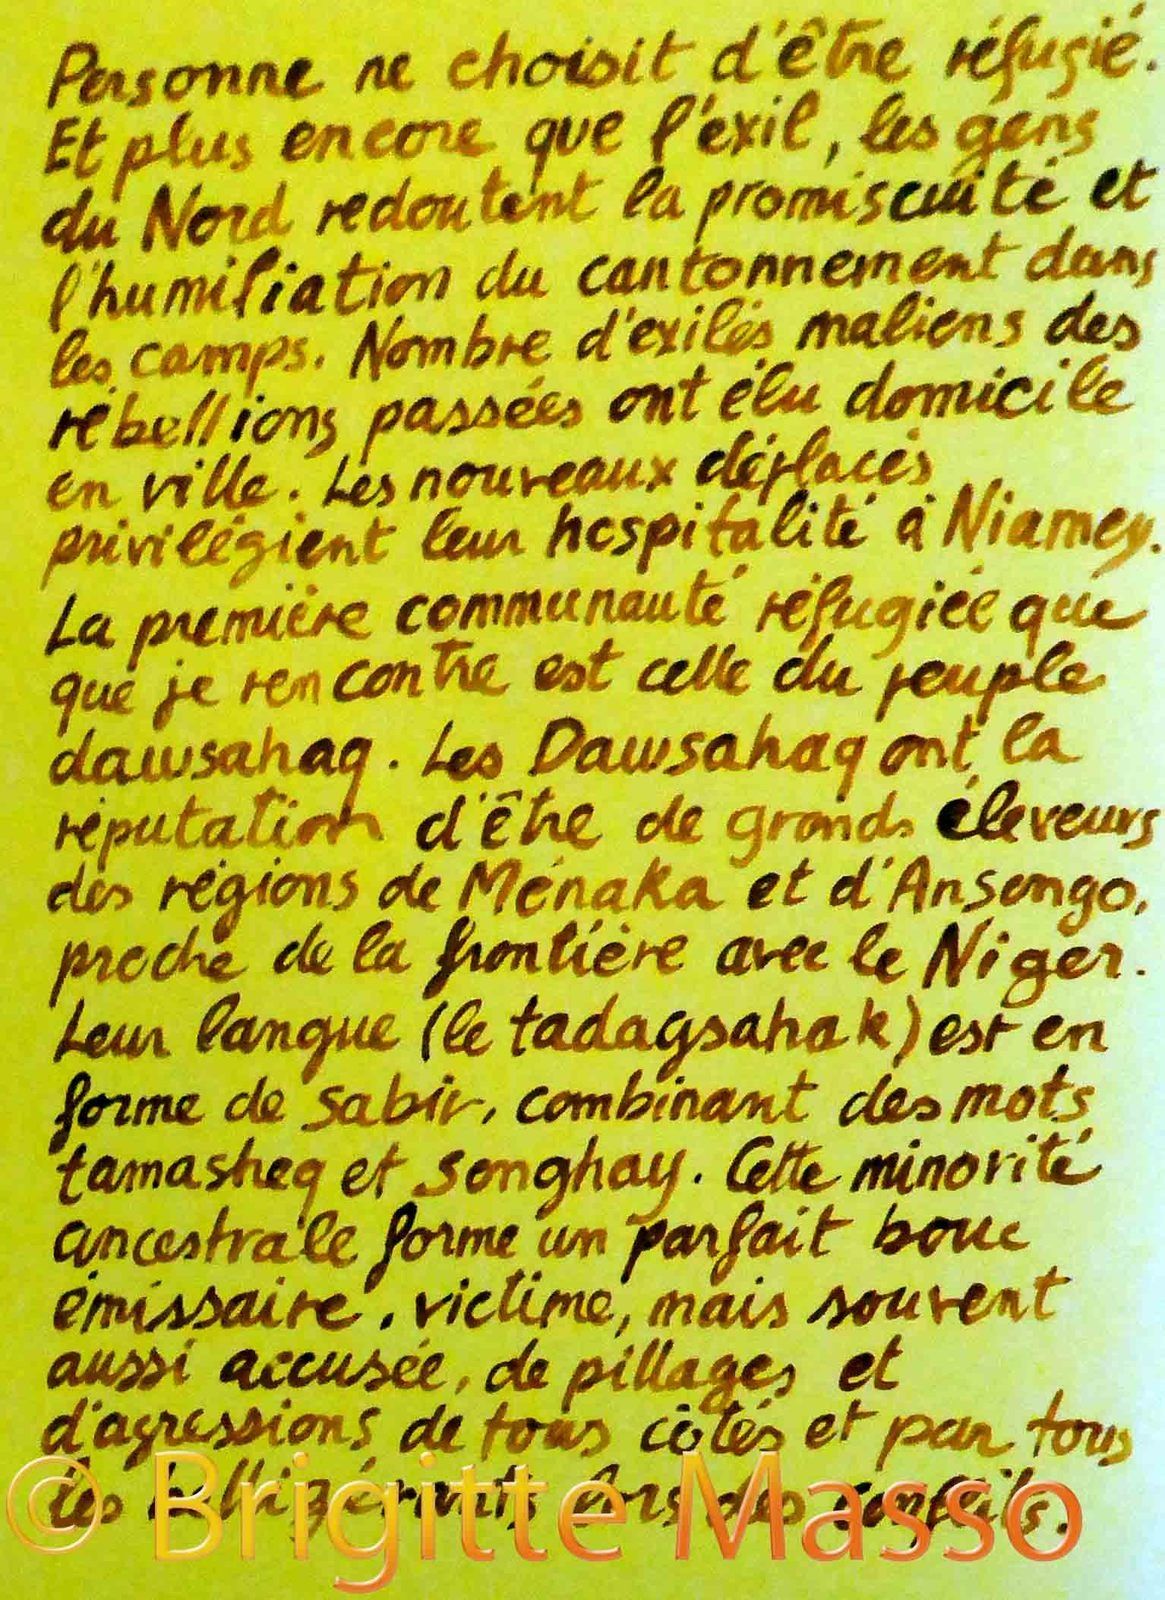 Personne ne choisit d'être réfugié.
Et plus encore que l'exil, les gens
du Nord redoutent la promiscuité et
l'humiliation du cantonnement dans
les camps. Nombre d'exilés maliens des
rébellions passées ont élu domicile
en ville. Les nouveaux déplacés
privilégient leur hospitalité à Niamey.
La première communauté réfugiée que
que je rencontre est celle du peuple
dawsahaq. Les Dawsahaq ont la
réputation d'être de grands éleveurs
des régions de Ménaka et d'Ansongo,
proche de la frontière avec le Niger.
Leur langue (le tadagsahak) est en
forme de sabir, combinant des mots
tamasheq et songhay. Cette minorité
ancestrale forme un parfait bouc
émissaire, victime, mais souvent
aussi accusée, de pillages et
d'agressions de tous côtés et par tous
les belligérants lors des conflits.
© Brigitte Masso